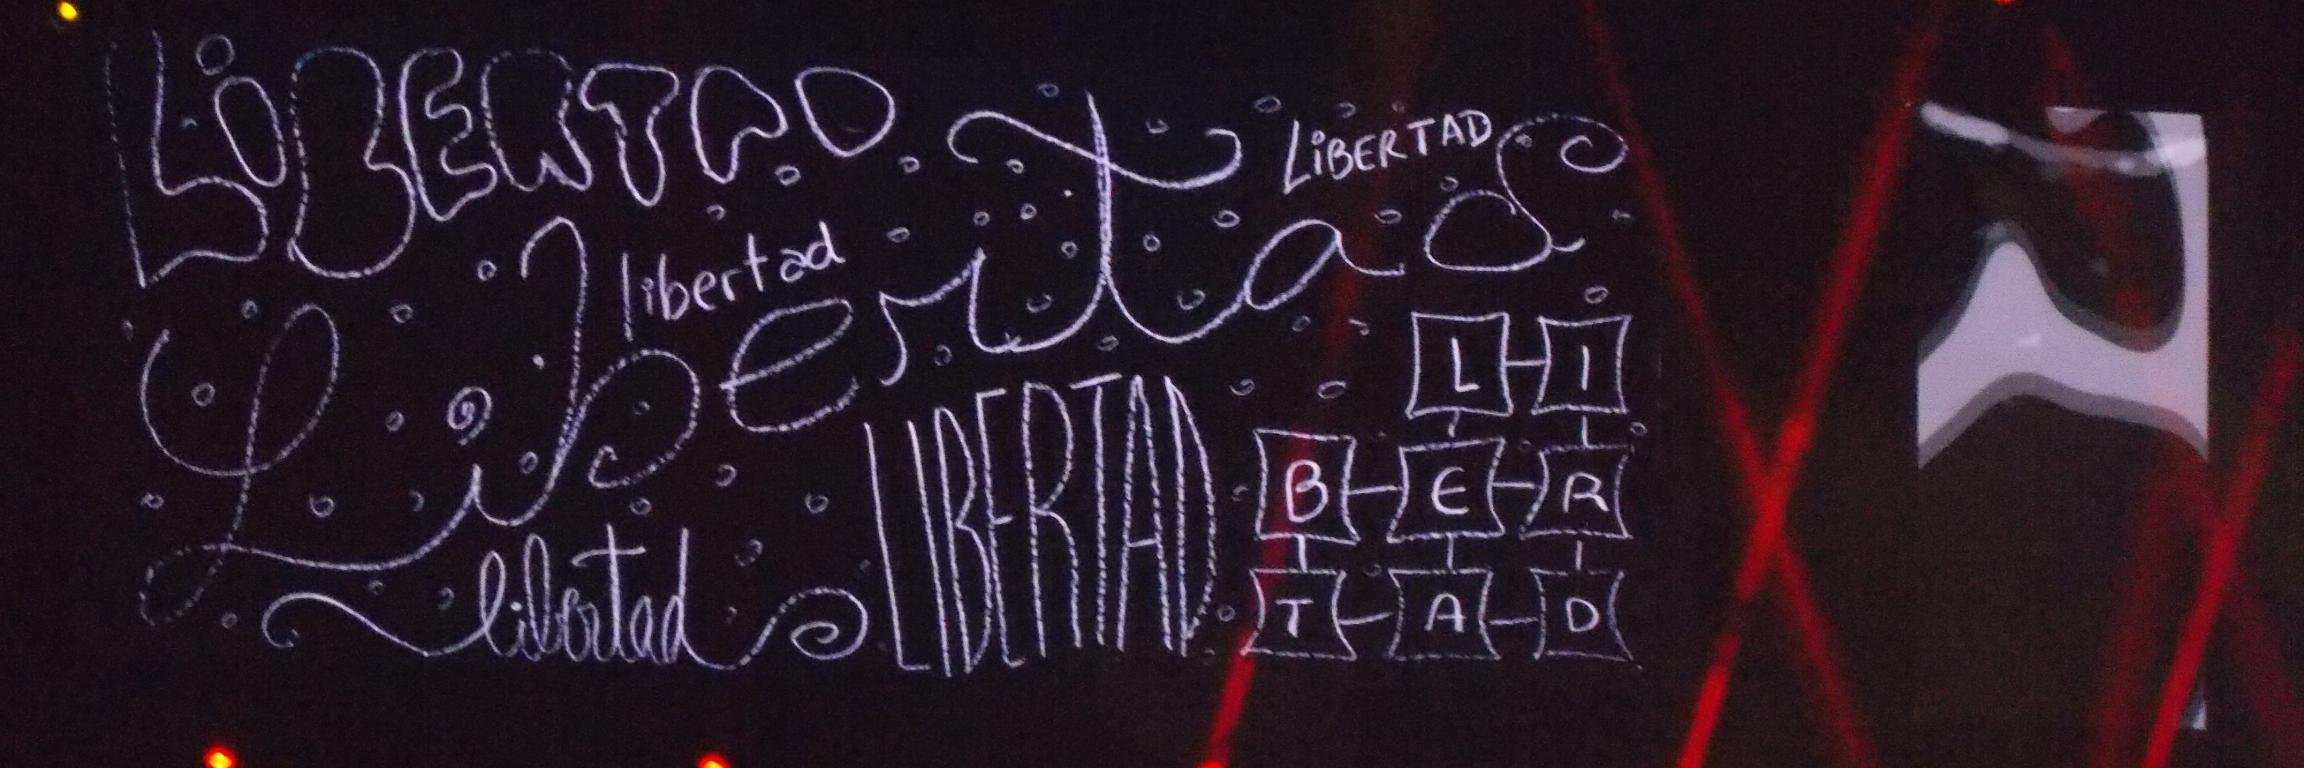 LiBERTAD
LiBERTAD
libertad
Libertas
LIBERTAD
L I
B E R
T A D
libertad